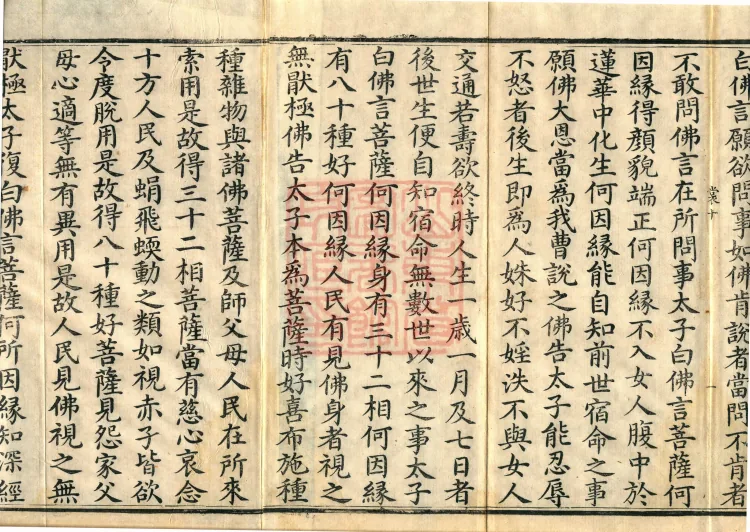 白佛言願欲問事如佛肯說者當問不肯者
不敢問佛言在所問事太子白佛言菩薩何
因緣得顏貌端正何因緣不入女人腹中於
蓮華中化生何因緣能自知前世宿命之事
願佛大恩當為我曹說之佛告太子能忍辱
不怒者後生即為人姝好不婬泆不與女人
交通若壽欲終時人生一歲一月及七日者
後世生便自知宿命無數世以來之事太子
白佛言菩薩何因緣身有三十二相何因緣
有八十種好何因緣人民有見佛身者視之
無猒極佛告太子本為菩薩時好喜布施種
種雜物與諸佛菩薩及師父母人民在所來
索用是故得三十二相菩薩當有慈心哀念
十方人民及蜎飛蝡動之類如視赤子皆欲
令度脫用是故得八十種好菩薩見怨家父
母心適等無有異用是故人民見佛視之無
猒極太子復白佛言菩薩何所因緣知深經